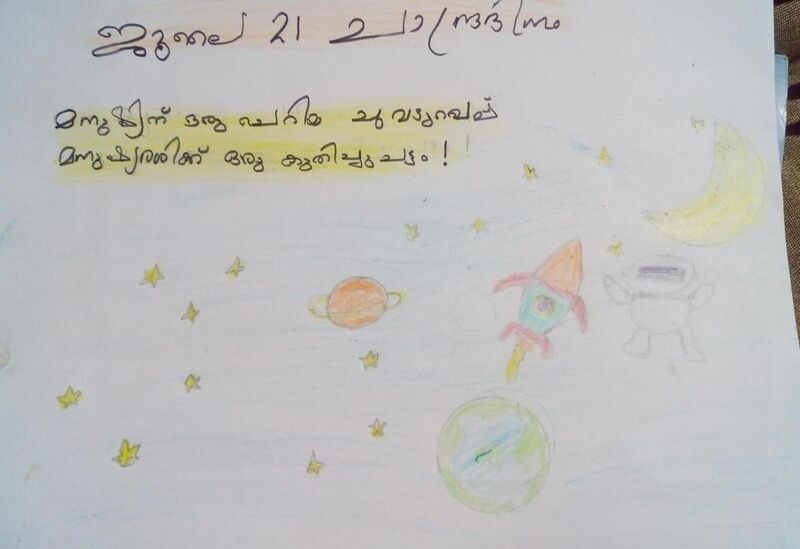 ജൂലൈ 21 ചാന്ദ്രദിനം
മനുഷ്യന് ഒരു ചെറിയ ചുവടുവെപ്പ്
മനുഷ്യരാശിക്ക് ഒരു കുതിച്ചുചട്ടം!